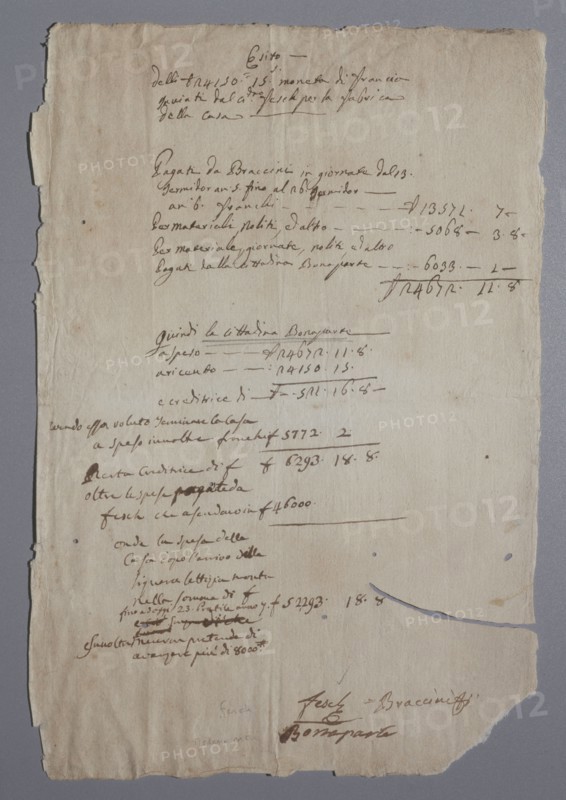 Esito —
delli ₶ 24150. 15.s moneta di Francia
inviati dal c.dno Fesch per la fabrica
della casa
Pagate da Braccini in giornate dal 13.
Germidor an. 5. fino al 26 Germidor —
an. 6. franchi — — — — ₶ 13571. 7 –
Per materiali, noliti, ed altro — — — 5068 – 3. 8 –
Per materiale, giornate, noliti ed altro
Pagate dalla Cittadina Bonaparte — — 6033 — 1 –
₶ 24672. 11. 8
Quindi la Cittadina Bonaparte
a speso — — — ₶ 24672. 11. 8.
a ricevuto — — : 24150. 15.
e creditrice di — ₶ – 521. 16. 8 –
avendo essa voluto terminare la casa
a speso inoltre franchi f 5772. 2
Resta Creditrice di f f 6293. 18. 8.
oltre le spese pagate da
Fesch che ascendono in f 46000.
onde la spesa della
Casa dopo l'arrivo della
Signora Letizia monta
nella somma di f
fino ad oggi 23. anno 7. f 52293. 18. 8
pretende di
avanzare più di 8000
Fesch = Braccini
Bonaparte
PHOTO12
PHOTO12
PHOTO12
PHOTO12
PHOTO12
PHOTO12
PHOTO12
PHOTO12
PHOTO12
PHOTO12